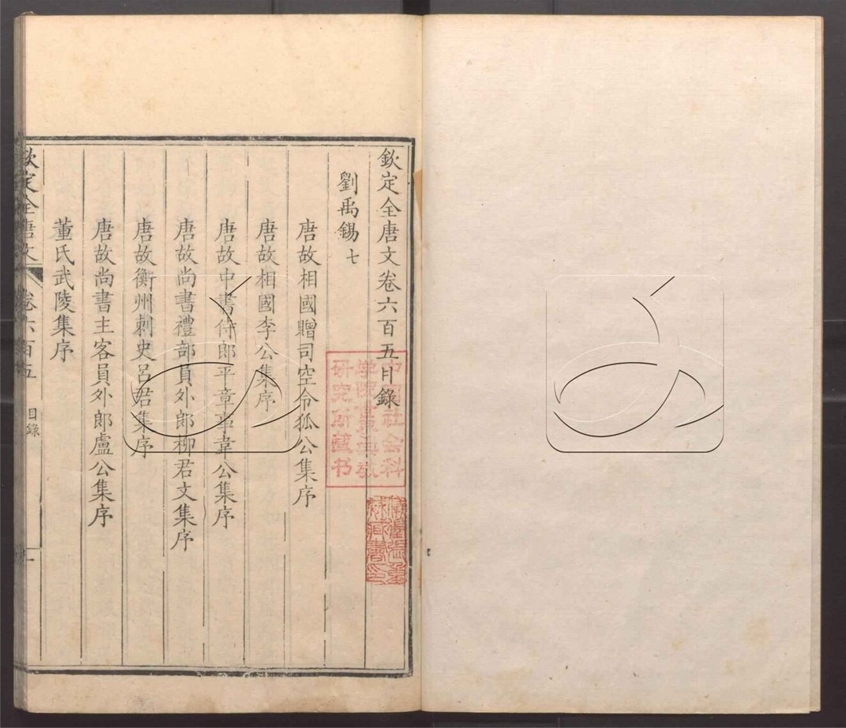 欽定全唐文卷六百五目錄
劉禹錫七
唐故相國贈司空令狐公集序
唐故相國李公集序
唐故中書侍郎平章事韋公集序
唐故尚書禮部員外郎柳君文集序
唐故衡州刺史呂君集序
唐故尚書主客員外郎盧公集序
董氏武陵集序
欽定全唐文 卷六百五 目錄 一